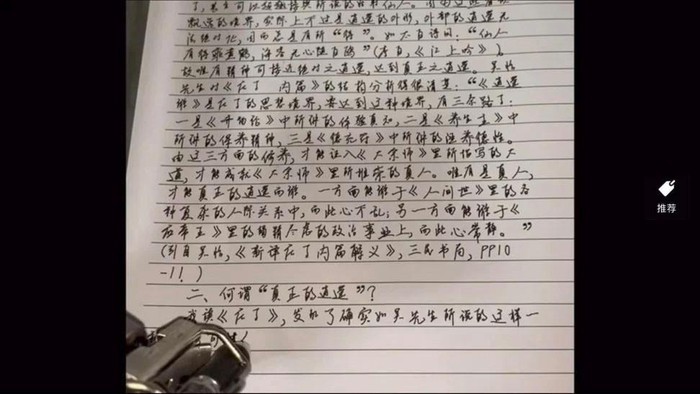 飘逸的境界，实际上不过是逍遥的外形，外部的逍遥无
法绝对化，因而总是有所“待”。如太白诗词：“仙人
有待乘黄鹤，海客无心随白鸥”（李白，《江上吟》）。
故唯有精神可接近绝对之逍遥，达到真正之逍遥。吴怡
先生对《庄子 内篇》的结构分析得很清楚：“《逍遥
游》是庄子的思想境界，要达到这种境界，有三条路子：
一是《齐物论》中所讲的体验真知，二是《养生主》中
所讲的保养精神，三是《德充符》中所讲的涵养德性。
由这三方面的修养，才能证入《大宗师》里所描写的大
道，才能成就《大宗师》里所推崇的真人。唯有是真人，
才能真正的逍遥而游。一方面能游于《人间世》里的各
种复杂的人际关系中，而此心不乱；另一方面能游于《
应帝王》里的精精尽虑的政治事业上，而此心常静。”
（引自吴怡，《新译庄子内篇解义》，三民书局，PP10
-11）
二、何谓“真正的逍遥”？
当读《庄子》，发现了确实如吴先生所说的这样一
推荐